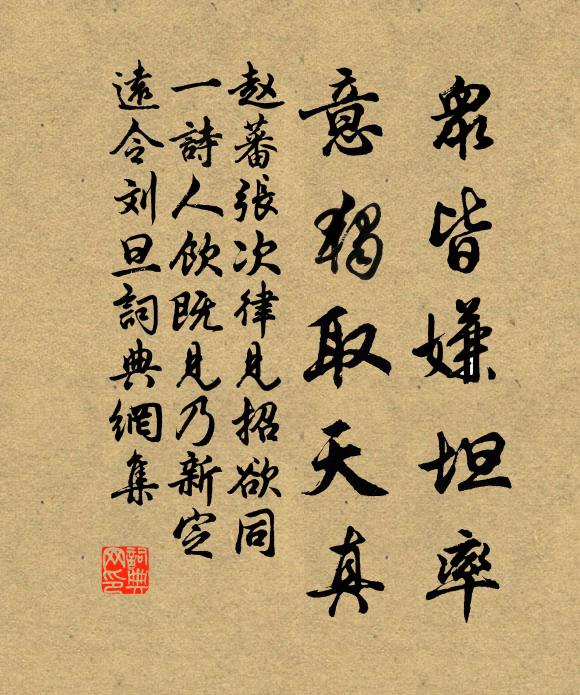 眾皆嫌坦率
意獨取天真
赵蕃張次律見招欲同
一詩人飲既見乃新定
遠令刘旦詞典網集
詞典
网印